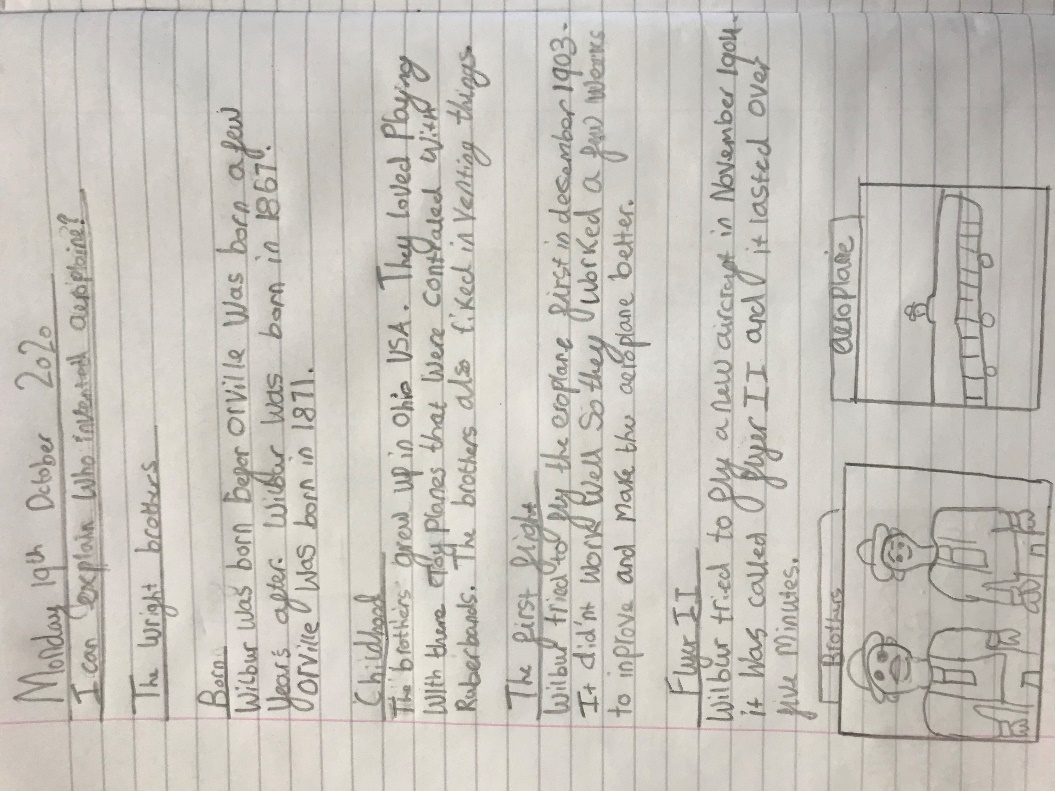 Monday 19th October 2020
I can explain Who invented aeroplaine?
The Wright brothers
Born
Wilbur was born befor Orville Was born a few
years after. Wilbur was born in 1867.
Orville was born in 1871.
Childhood
The brothers grew up in Ohio USA. They loved Playing
With there Toy Planes that Were contraled With
Ruberbands. The brothers also liked inventing things.
The first flight
Wilbur tried to fly the eroplane first in decembar 1903.
It did'nt work Well So they Worked a few Weeks
to inprove and make the aeroplane better.
Flyer II
Wilbur tried to fly a new aircrapt in November 1904.
it Was called flyer II and it lasted over
five Minutes.
Brothers
aeroplane